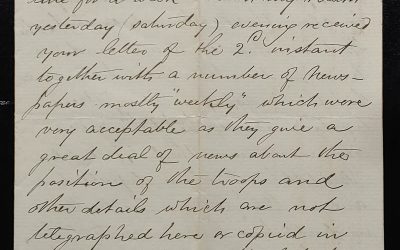 yesterday (Saturday) evening received
your letter of the 2d instant
together with a number of news-
papers mostly "weekly" which were
very acceptable as they give a
great deal of news about the
position of the troops and
other details which are not
telegraphed here or copied in